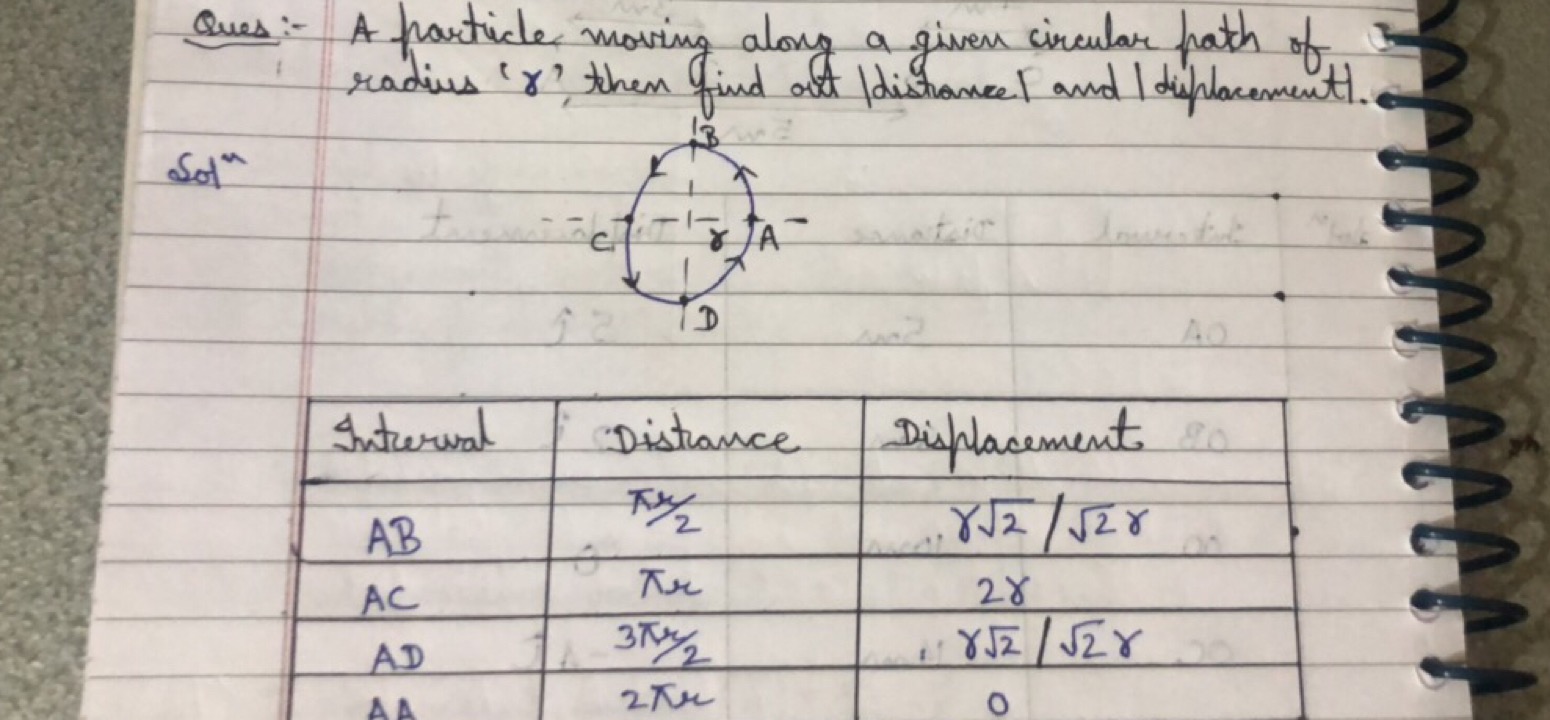 Ques :- A particle moving along a given circular path of
radius 'r', then find out |distance| and |displacement|.
Solⁿ
B
C r A
D
Interval Distance Displacement
AB πr/2 r√2 / √2 r
AC πr 2r
AD 3πr/2 r√2 / √2 r
AA 2πr 0